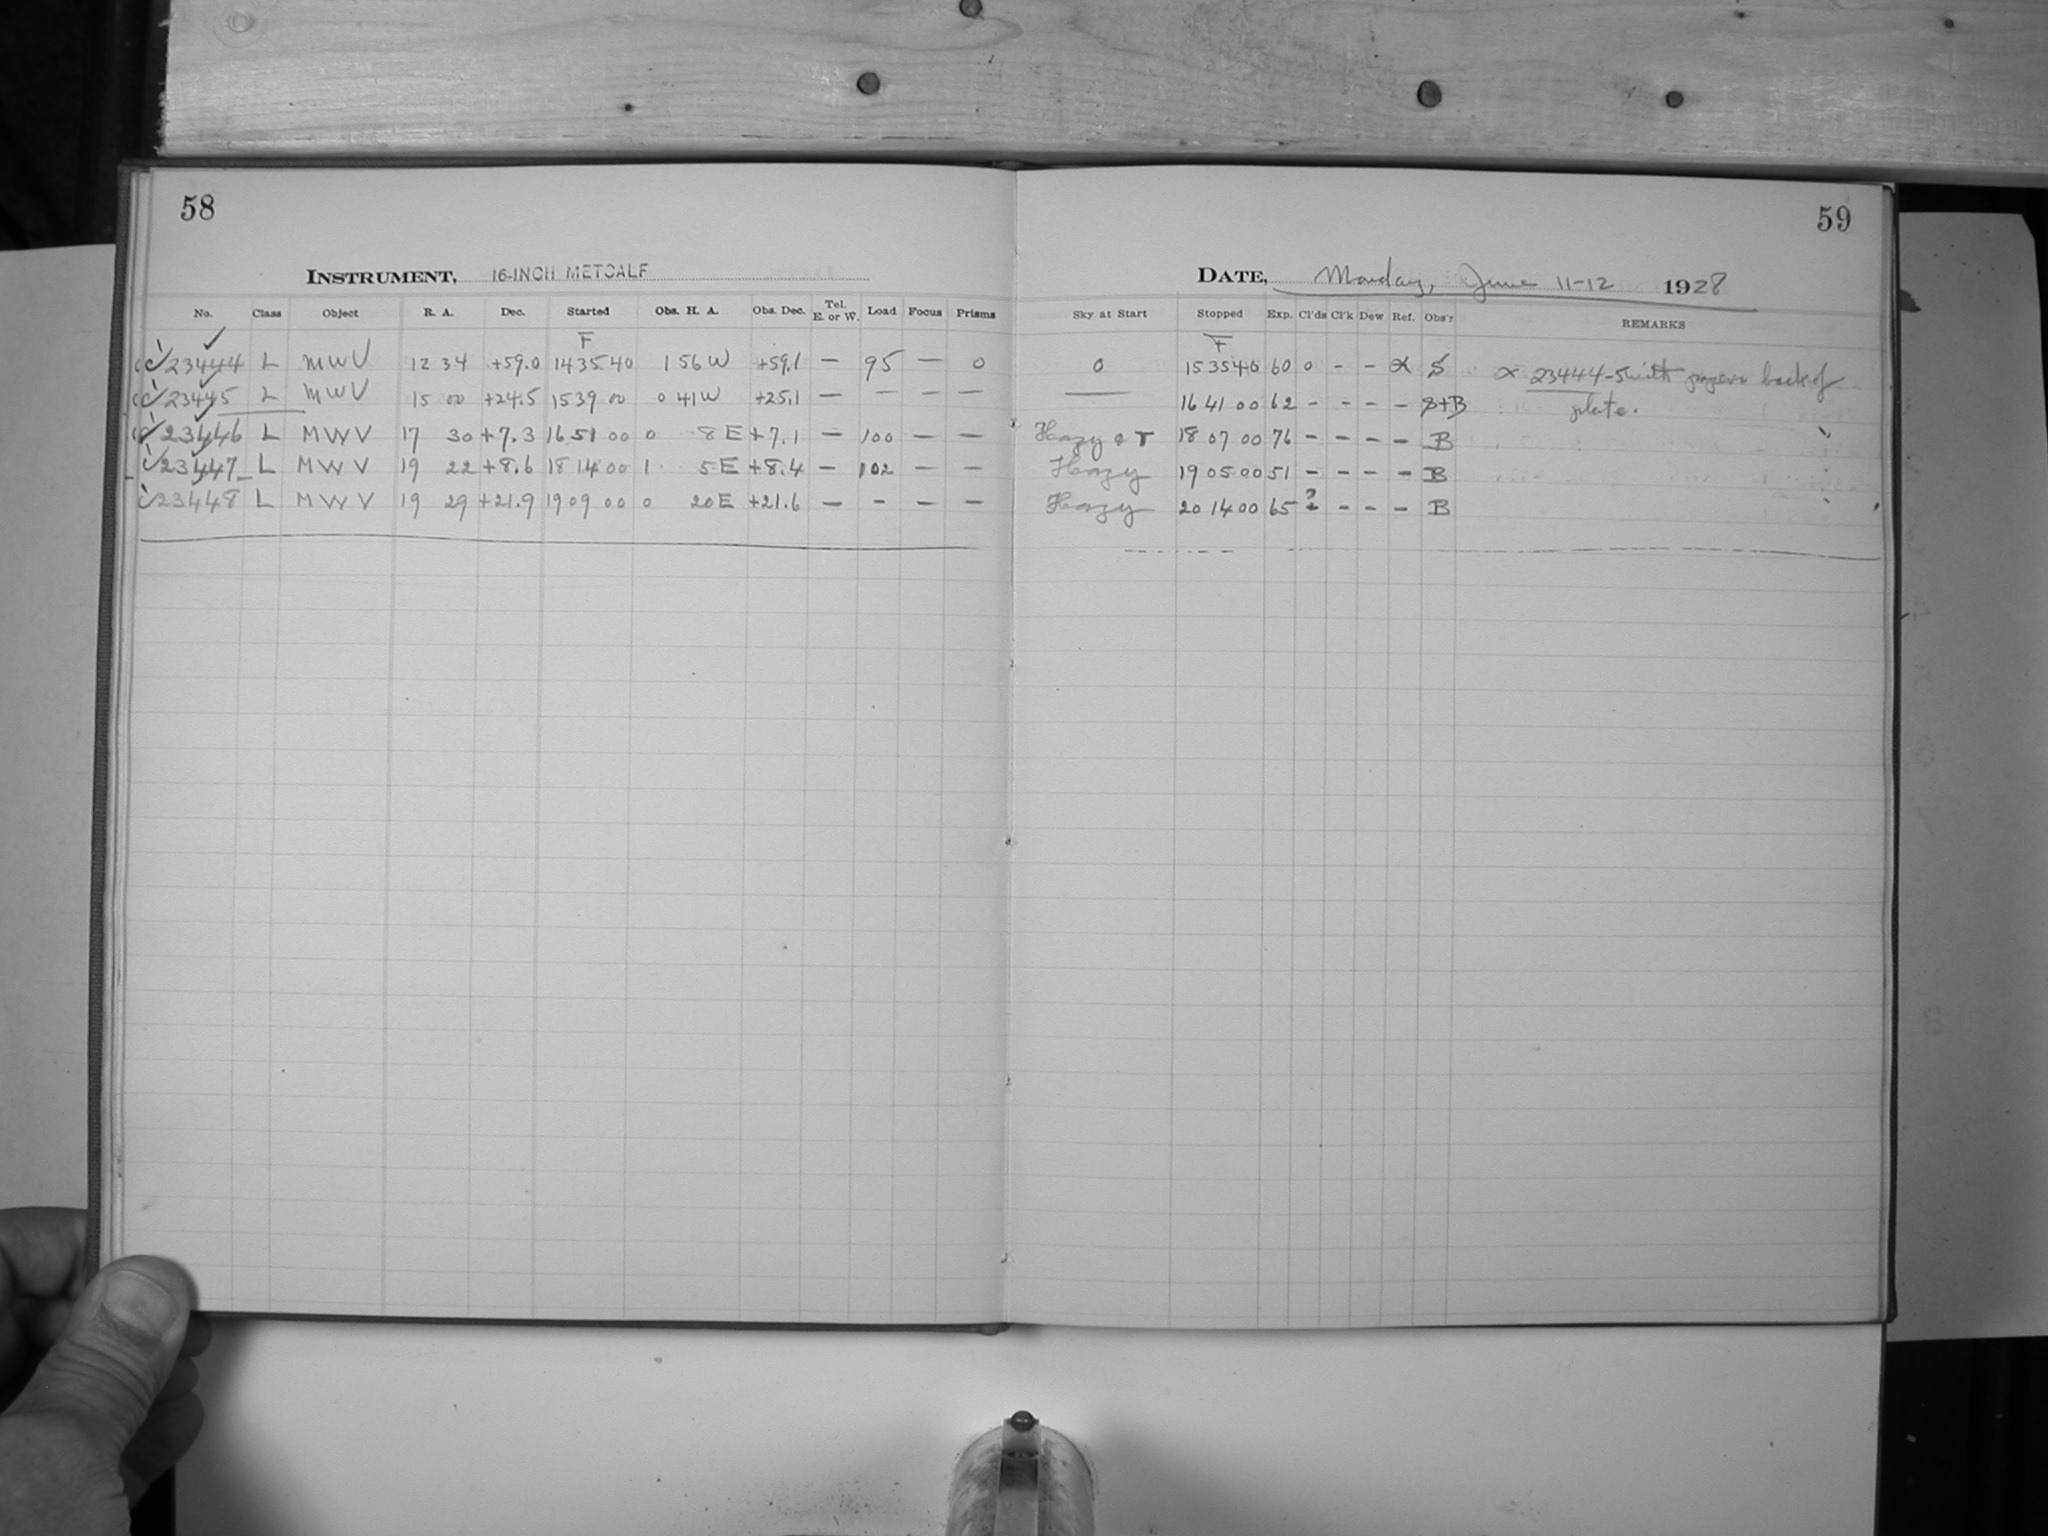 58
INSTRUMENT, 16-INCH METCALF
No. Class Object R. A. Dec. Started Obs. H. A. Obs. Dec. Tel. E. or W. Load Focus Prisms
F
23444 L MWV 12 34 +59.0 14 35 40 1 56 W +59.1 — 95 — 0
23445 L MWV 15 00 +24.5 15 39 00 0 41 W +25.1 — — — —
23446 L MWV 17 30 +7.3 16 51 00 0 8 E +7.1 — 100 — —
23447 L MWV 19 22 +8.6 18 14 00 1 5 E +8.4 — 102 — —
23448 L MWV 19 29 +21.9 19 09 00 0 20 E +21.6 — - — —
59
DATE, Monday, June 11-12 1928
Sky at Start Stopped Exp. Cl'ds Cl'k Dew Ref. Obs'r REMARKS
F
0 15 35 40 60 0 - - α S α 23444-5 with paper back of
— 16 41 00 62 - - - - S+B plate.
Hazy 18 07 00 76 - - - - B
Hazy 19 05 00 51 - - - - B
Hazy 20 14 00 65 ? - - - B